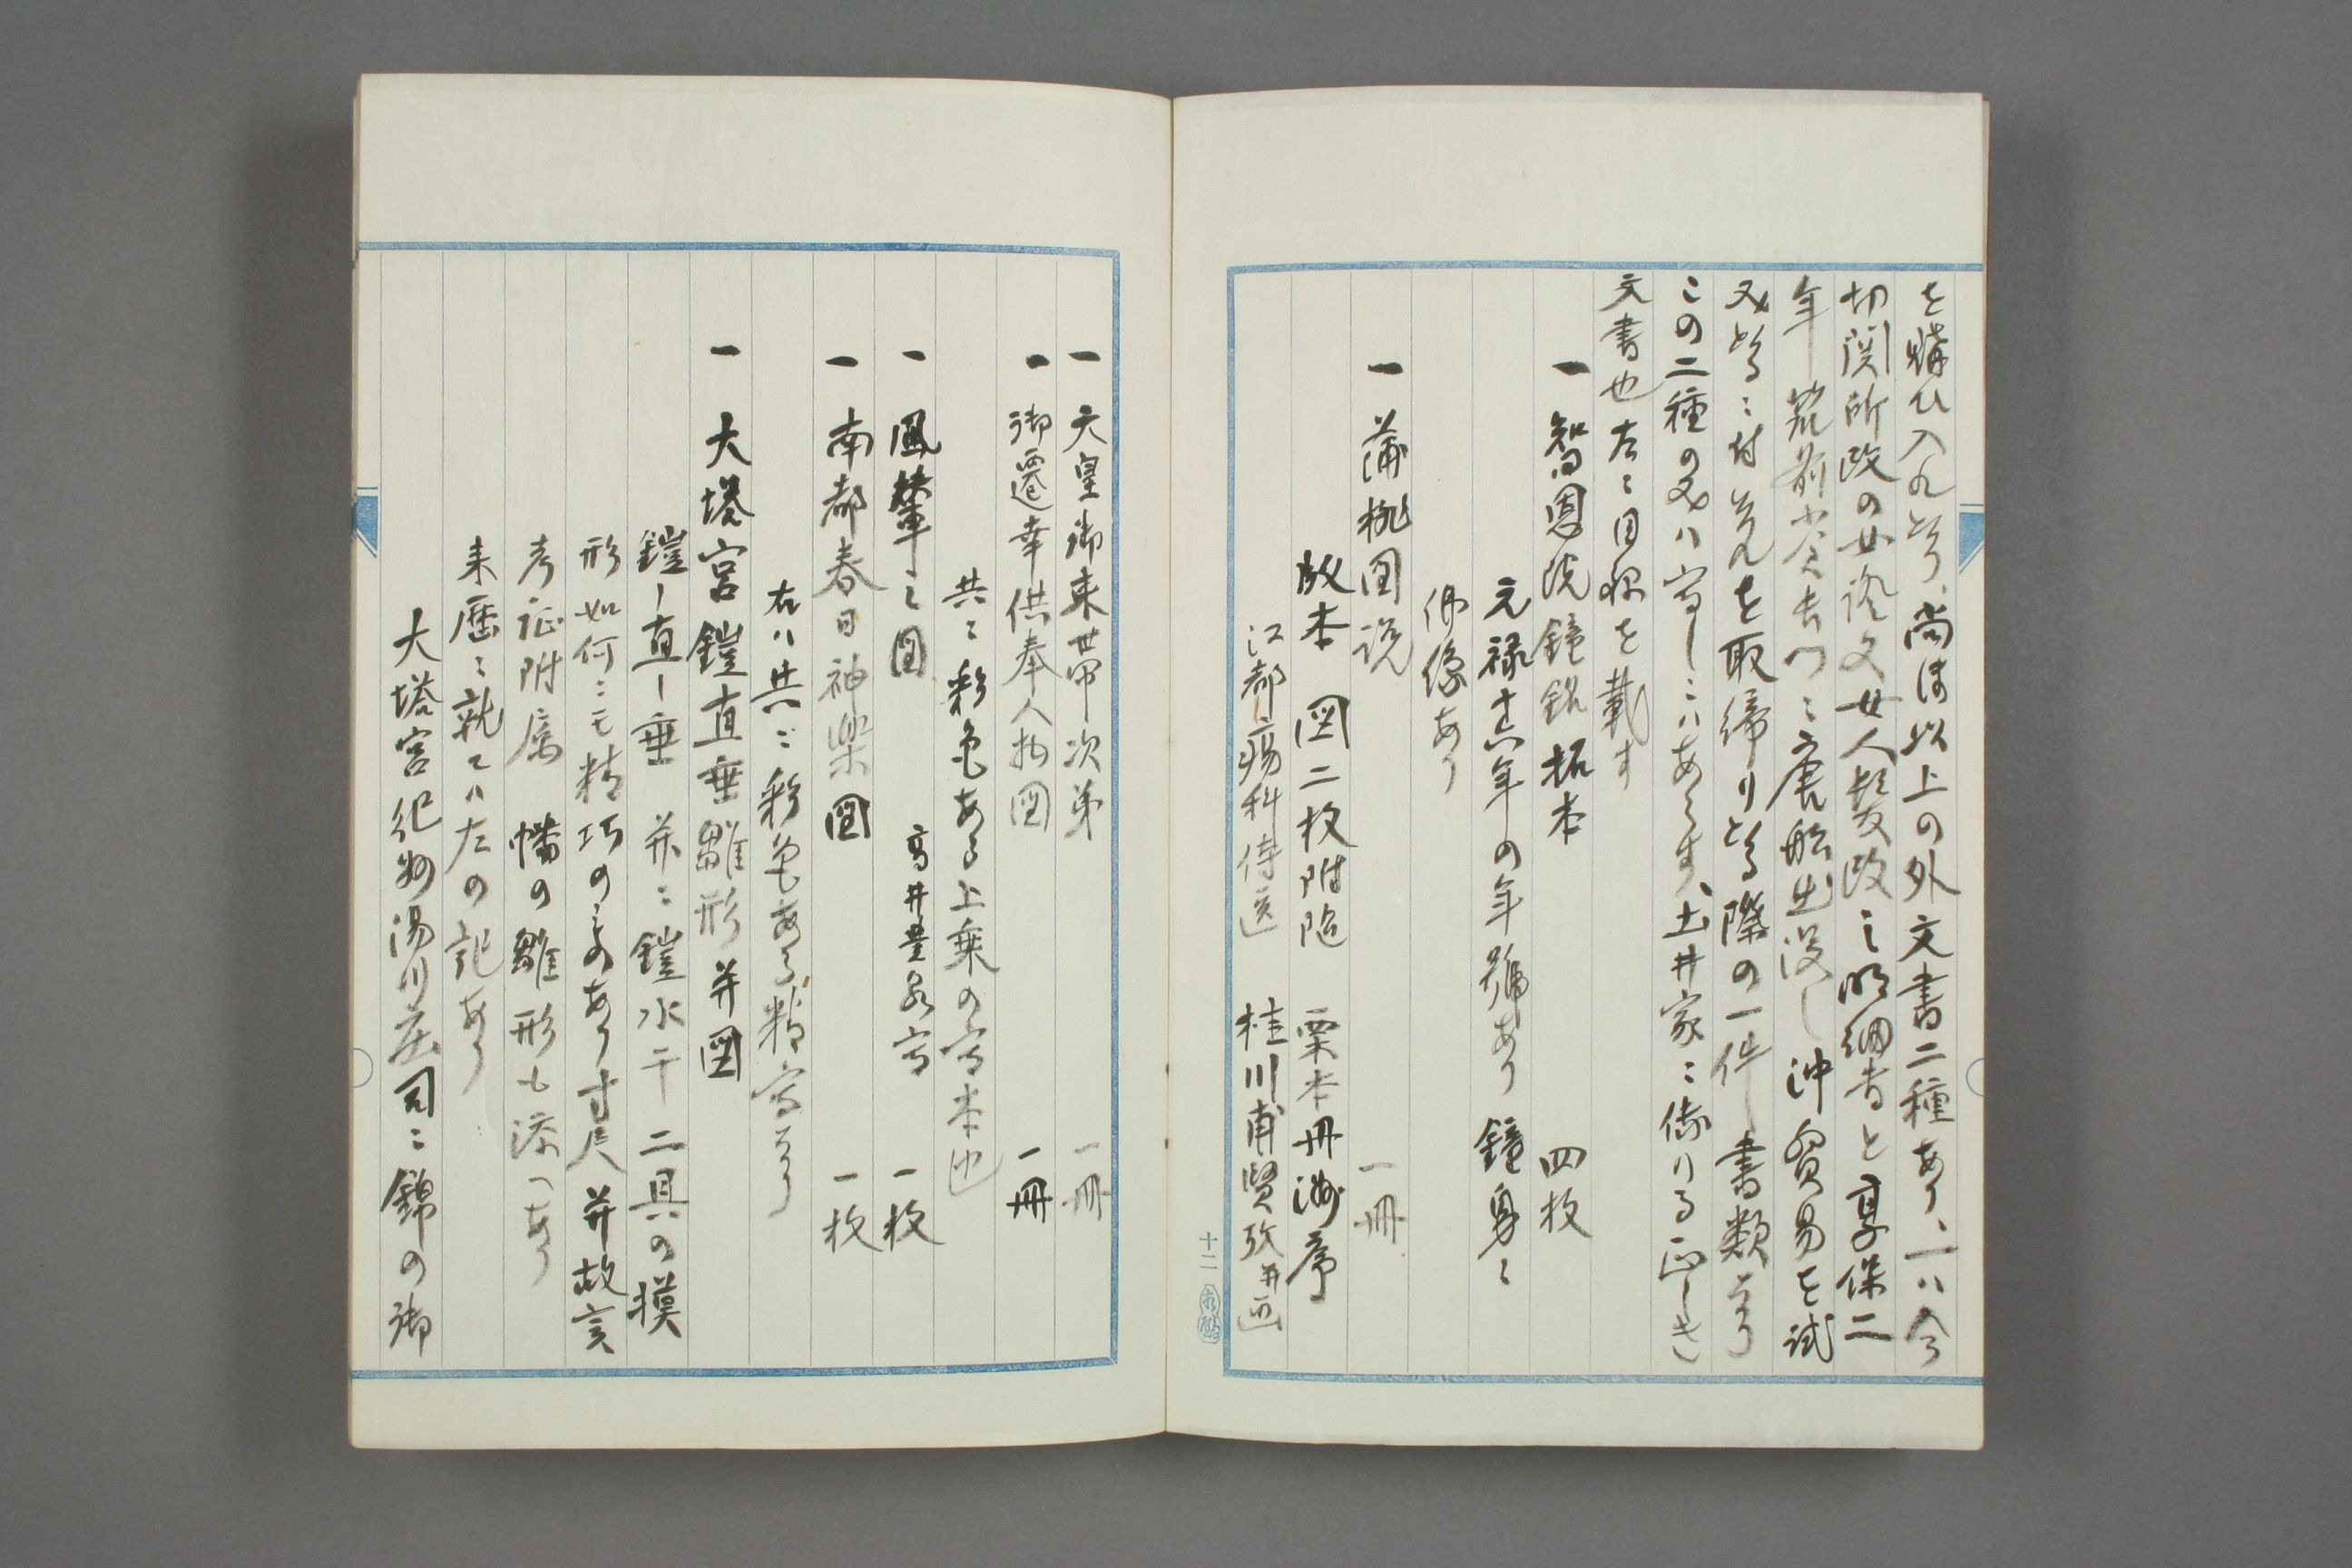 を購ひ入れたり、尚ほ以上の外文書二種あり、一ハ今
切関所改の女証文女人髪改之明細書と享保二
年筑前小倉長門に唐船出没し沖貿易を試
又たるに付それを取締りたる際の一件書類なり
この二種の文ハ写しにハあらす、土井家に伝りる正しき
文書也左に目録を載す
一 智恩院鐘銘拓本 四枚
元禄十六年の年号あり鐘身に
仏像あり
一 蒲桃図説 一冊
版本 図二枚附 栗本丹洲序
江都瘍科侍医 桂川甫賢 并画
十二
一 天皇御束帯次第 一冊
一 御遷幸供奉人物図 一冊
共に彩色ある上乗の写本也
一 鳳輦之図 高井豊泉写 一枚
一 南都春日神楽図 一枚
右ハ共に彩色ある精写なり
一 大塔宮鎧直垂雛形并図
鎧ー直ー垂 并に鎧水干二具の模
形如何にも精巧のものあり寸尺并故実
考証附属 幡の雛形も添へあり
来歴に就てハ左の記あり
大塔宮紀州湯川庄司に錦の御